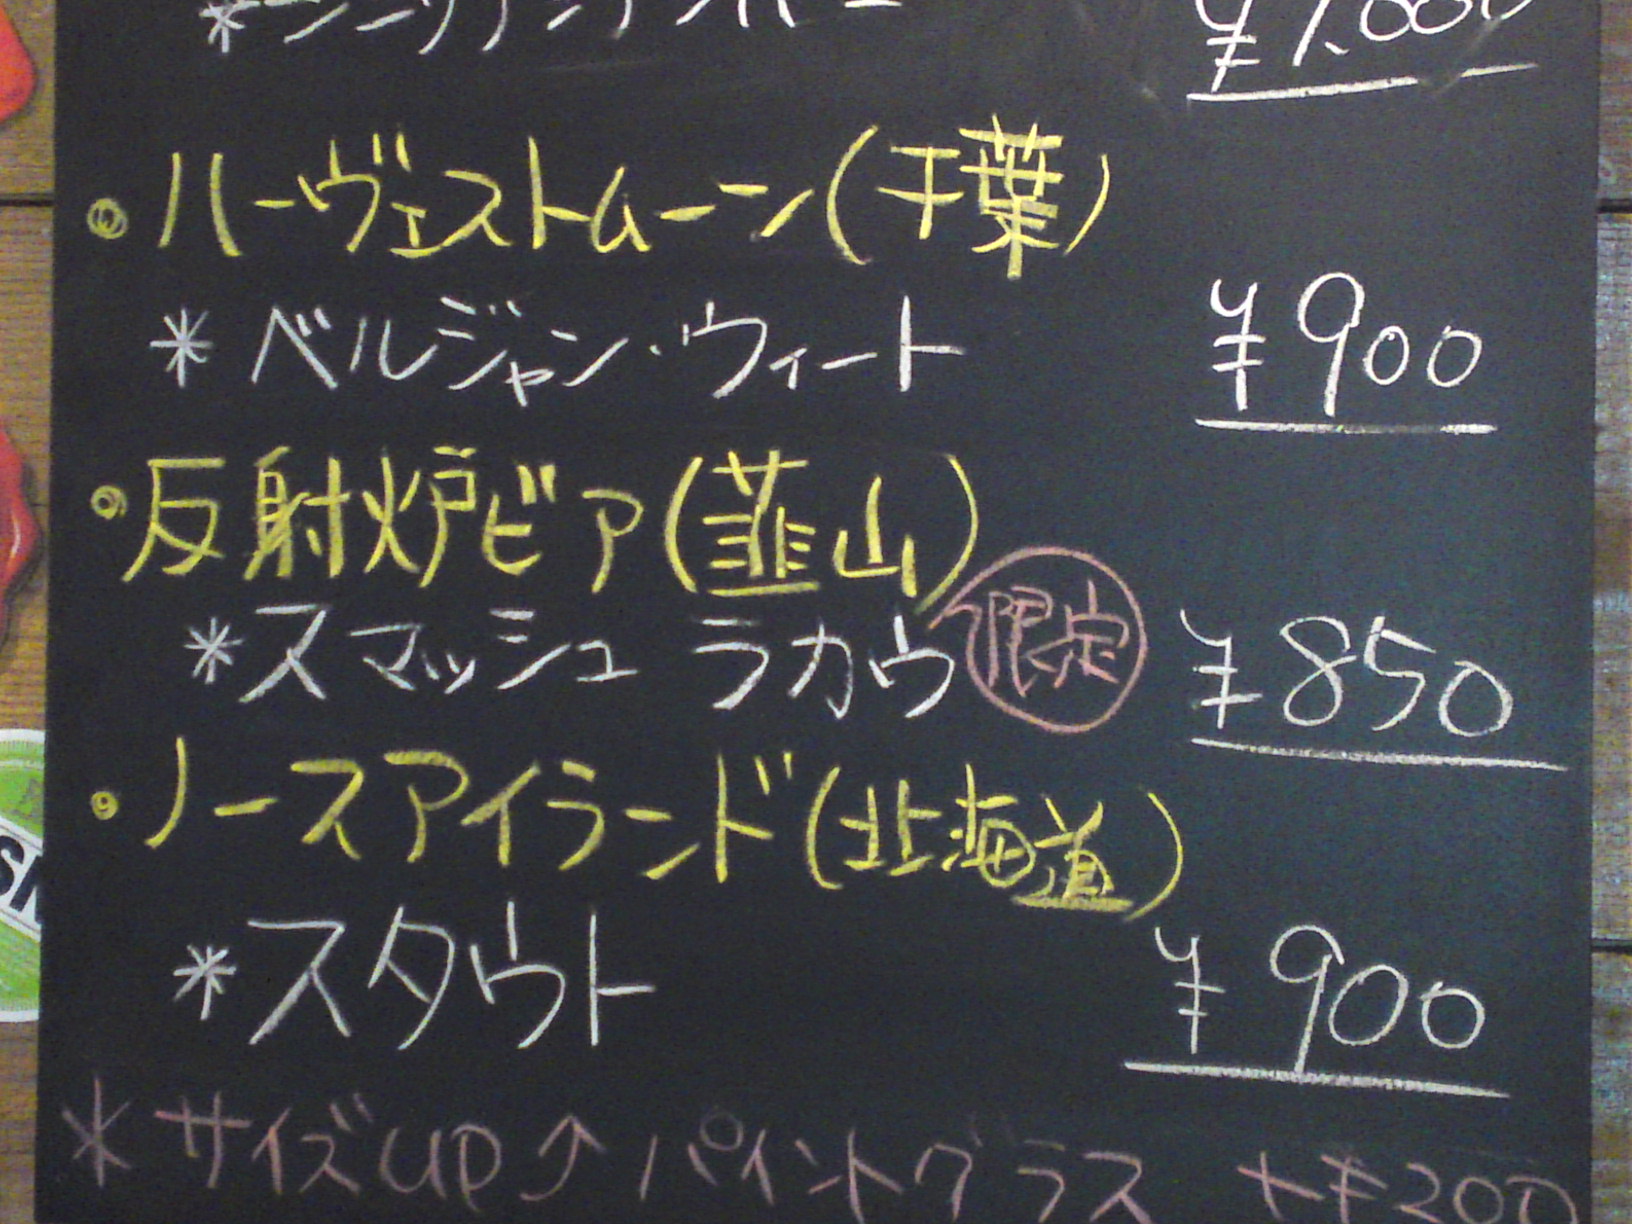 ¥1,000
◎ハーヴェストムーン(千葉)
*ベルジャン・ウィート ¥900
◎反射炉ビア(韮山)
*スマッシュ ラカウ 限定 ¥850
◎ノースアイランド(北海道)
*スタウト ¥900
*サイズUP↑パイントグラス +¥200